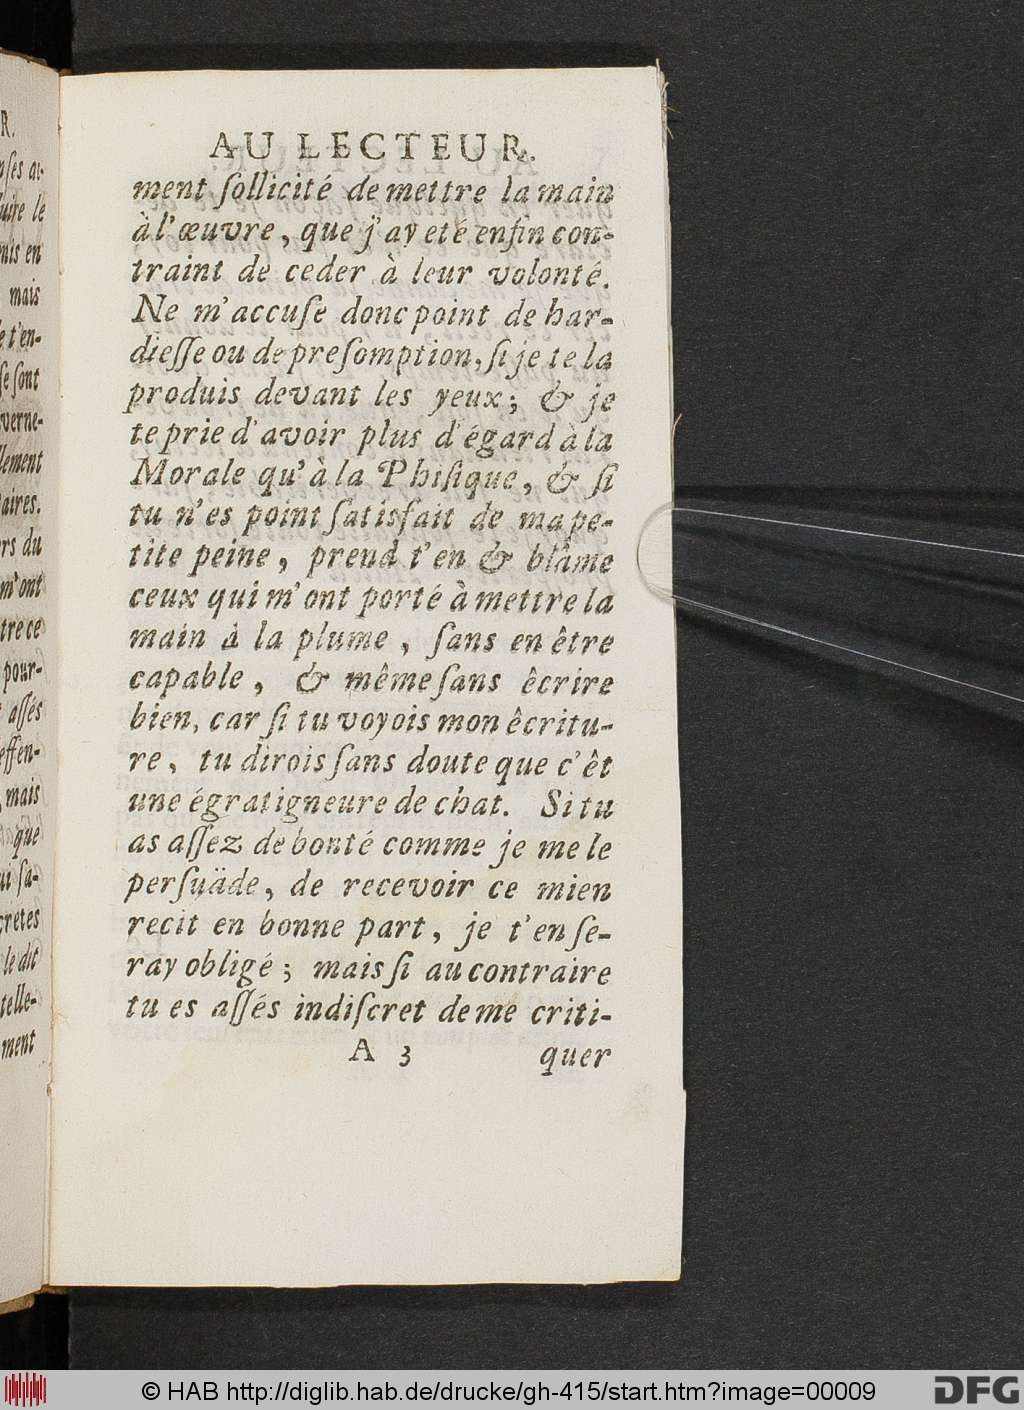 R.
uire le
mis en
mais
verne-
llement
aires.
rs du
m'ont
tre ce
pour-
aſſés
effen-
mais
que
ui ſa-
cretes
le dit
telle-
ment
AU LECTEUR.
ment ſollicité de mettre la main
à l'œuvre, que j'ay eté enfin con-
traint de ceder à leur volonté.
Ne m'accuſe donc point de har-
dieſſe ou de preſomption, ſi je te la
produis devant les yeux; & je
te prie d'avoir plus d'égard à la
Morale qu'à la Phiſique, & ſi
tu n'es point ſatisfait de ma pe-
tite peine, prend t'en & blâme
ceux qui m'ont porté à mettre la
main à la plume, ſans en être
capable, & même ſans êcrire
bien, car ſi tu voyois mon êcritu-
re, tu dirois ſans doute que c'êt
une égratigneure de chat. Si tu
as aſſez de bonté comme je me le
perſuäde, de recevoir ce mien
recit en bonne part, je t'en ſe-
ray obligé; mais ſi au contraire
tu es aſſés indiſcret de me criti-
A 3 quer
© HAB http://diglib.hab.de/drucke/gh-415/start.htm?image=00009
DFG